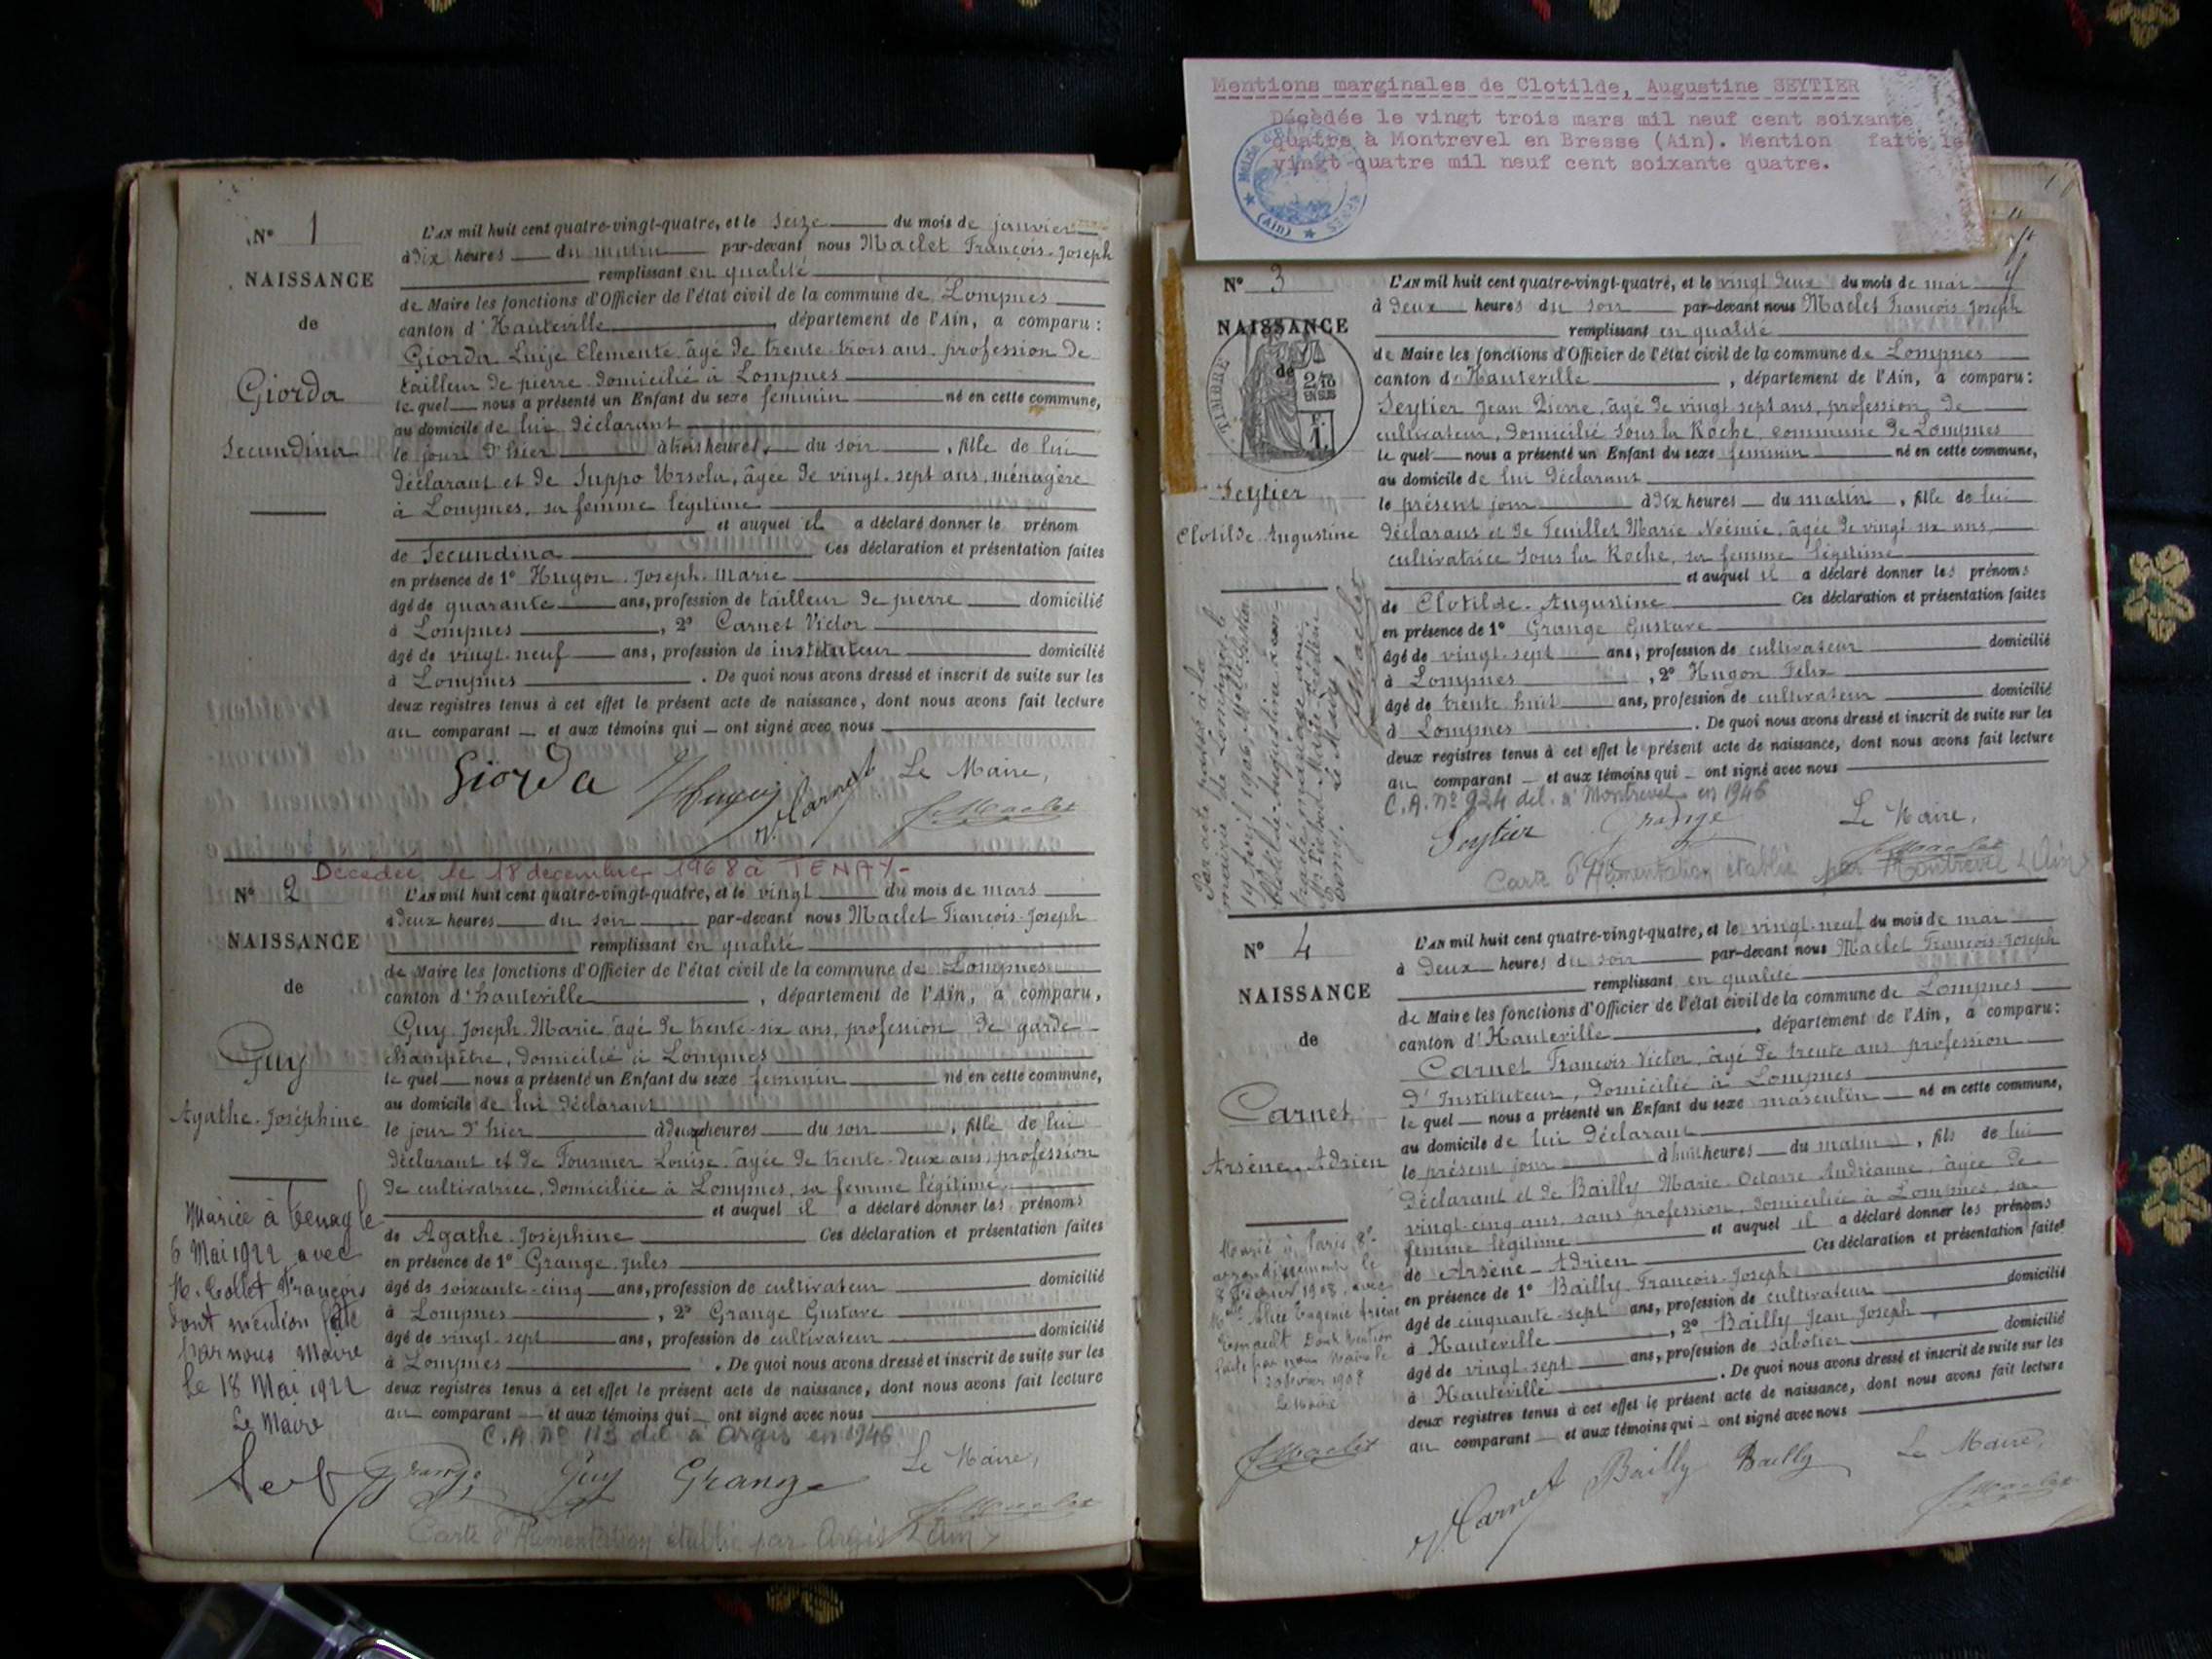 N° 1
NAISSANCE
de
Giorda
Secundina
L'AN mil huit cent quatre-vingt-quatre, et le seize du mois de janvier
à dix heures du matin par-devant nous Maclet François-Joseph
remplissant en qualité
de Maire les fonctions d'Officier de l'état civil de la commune de Lompnes
canton d'Hauteville, département de l'Ain, a comparu :
Giorda Luije Clemente âgé de trente-trois ans, profession de
tailleur de pierre domicilié à Lompnes
le quel nous a présenté un Enfant du sexe féminin né en cette commune,
au domicile de lui déclarant
le jour d'hier à trois heures du soir, fille de lui
déclarant et de Suppo Ursola, âgée de vingt-sept ans, ménagère
à Lompnes, sa femme légitime
et auquel il a déclaré donner le prénom
de Secundina Ces déclaration et présentation faites
en présence de 1° Hugon Joseph-Marie
âgé de quarante ans, profession de tailleur de pierre domicilié
à Lompnes, 2° Carnet Victor
âgé de vingt-neuf ans, profession de instituteur domicilié
à Lompnes. De quoi nous avons dressé et inscrit de suite sur les
deux registres tenus à cet effet le présent acte de naissance, dont nous avons fait lecture
au comparant et aux témoins qui ont signé avec nous
Giorda Hugon V. Carnet Le Maire,
F. Maclet
Décédée le 18 décembre 1968 à TENAY-
N° 2
NAISSANCE
de
Guy
Agathe-Joséphine
L'AN mil huit cent quatre-vingt-quatre, et le vingt du mois de mars
à deux heures du soir par-devant nous Maclet François-Joseph
remplissant en qualité
de Maire les fonctions d'Officier de l'état civil de la commune de Lompnes
canton d'hauteville, département de l'Ain, a comparu,
Guy Joseph-Marie âgé de trente-six ans, profession de garde
champêtre, domicilié à Lompnes
le quel nous a présenté un Enfant du sexe féminin né en cette commune,
au domicile de lui déclarant
le jour d'hier à deux heures du soir, fille de lui
déclarant et de Fournier Louise, âgée de trente-deux ans, profession
de cultivatrice, domiciliée à Lompnes, sa femme légitime
et auquel il a déclaré donner les prénoms
de Agathe-Joséphine Ces déclaration et présentation faites
en présence de 1° Grange Jules
âgé de soixante-cinq ans, profession de cultivateur domicilié
à Lompnes, 2° Grange Gustave
âgé de vingt-sept ans, profession de cultivateur domicilié
à Lompnes. De quoi nous avons dressé et inscrit de suite sur les
deux registres tenus à cet effet le présent acte de naissance, dont nous avons fait lecture
au comparant et aux témoins qui ont signé avec nous
C.A. N° 113 dél. à Argis en 1946
Mariée à Tenay le
6 Mai 1922 avec
M. Collet François
dont mention faite
par nous Maire
le 18 Mai 1922
Le Maire
Grange Guy Grange Le Maire,
F. Maclet
Carte d'Alimentation établie par Argis (Ain)
Mentions marginales de Clotilde, Augustine SEYTIER
Décèdée le vingt trois mars mil neuf cent soixante
quatre à Montrevel en Bresse (Ain). Mention faite le
vingt-quatre mil neuf cent soixante quatre.
N° 3
NAISSANCE
de
TIMBRE
2/10 EN SUS
Seytier
Clotilde-Augustine
L'AN mil huit cent quatre-vingt-quatre, et le vingt deux du mois de mai
à deux heures du soir par-devant nous Maclet François Joseph
remplissant en qualité
de Maire les fonctions d'Officier de l'état civil de la commune de Lompnes
canton d'Hauteville, département de l'Ain, a comparu :
Seytier Jean Pierre, âgé de vingt-sept ans, profession de
cultivateur, domicilié sous la Roche, commune de Lompnes
le quel nous a présenté un Enfant du sexe féminin né en cette commune,
au domicile de lui déclarant
le présent jour à dix heures du matin, fille de lui
déclarant et de Feuillet Marie Noémie, âgée de vingt six ans,
cultivatrice sous la Roche, sa femme légitime
et auquel il a déclaré donner les prénoms
de Clotilde-Augustine Ces déclaration et présentation faites
en présence de 1° Grange Gustave
âgé de vingt-sept ans, profession de cultivateur domicilié
à Lompnes, 2° Hugon Félix
âgé de trente huit ans, profession de cultivateur domicilié
à Lompnes. De quoi nous avons dressé et inscrit de suite sur les
deux registres tenus à cet effet le présent acte de naissance, dont nous avons fait lecture
au comparant et aux témoins qui ont signé avec nous
C.A. N° 924 dél. à Montrevel en 1946
Seytier Grange Le Maire,
F. Maclet
Carte d'Alimentation établie par Montrevel (Ain)
N° 4
NAISSANCE
de
Carnet
Arsène-Adrien
L'AN mil huit cent quatre-vingt-quatre, et le vingt-neuf du mois de mai
à deux heures du soir par-devant nous Maclet François-Joseph
remplissant en qualité
de Maire les fonctions d'Officier de l'état civil de la commune de Lompnes
canton d'Hauteville, département de l'Ain, a comparu :
Carnet François-Victor, âgé de trente ans, profession
d'Instituteur, domicilié à Lompnes
le quel nous a présenté un Enfant du sexe masculin né en cette commune,
au domicile de lui déclarant
le présent jour à huit heures du matin, fils de lui
déclarant et de Bailly Marie-Octavie Andréanne, âgée de
vingt-cinq ans, sans profession, domiciliée à Lompnes, sa
femme légitime et auquel il a déclaré donner les prénoms
de Arsène-Adrien Ces déclaration et présentation faites
en présence de 1° Bailly François-Joseph
âgé de cinquante-sept ans, profession de cultivateur domicilié
à Hauteville, 2° Bailly Jean Joseph
âgé de vingt-sept ans, profession de sabotier domicilié
à Hauteville. De quoi nous avons dressé et inscrit de suite sur les
deux registres tenus à cet effet le présent acte de naissance, dont nous avons fait lecture
au comparant et aux témoins qui ont signé avec nous
Marié à Paris
arrondissement le
8 février 1908, avec
Alice Eugénie
dont mention
faite par nous Maire le
février 1908
Le Maire
F. Maclet
V. Carnet Bailly Bailly Le Maire,
F. Maclet